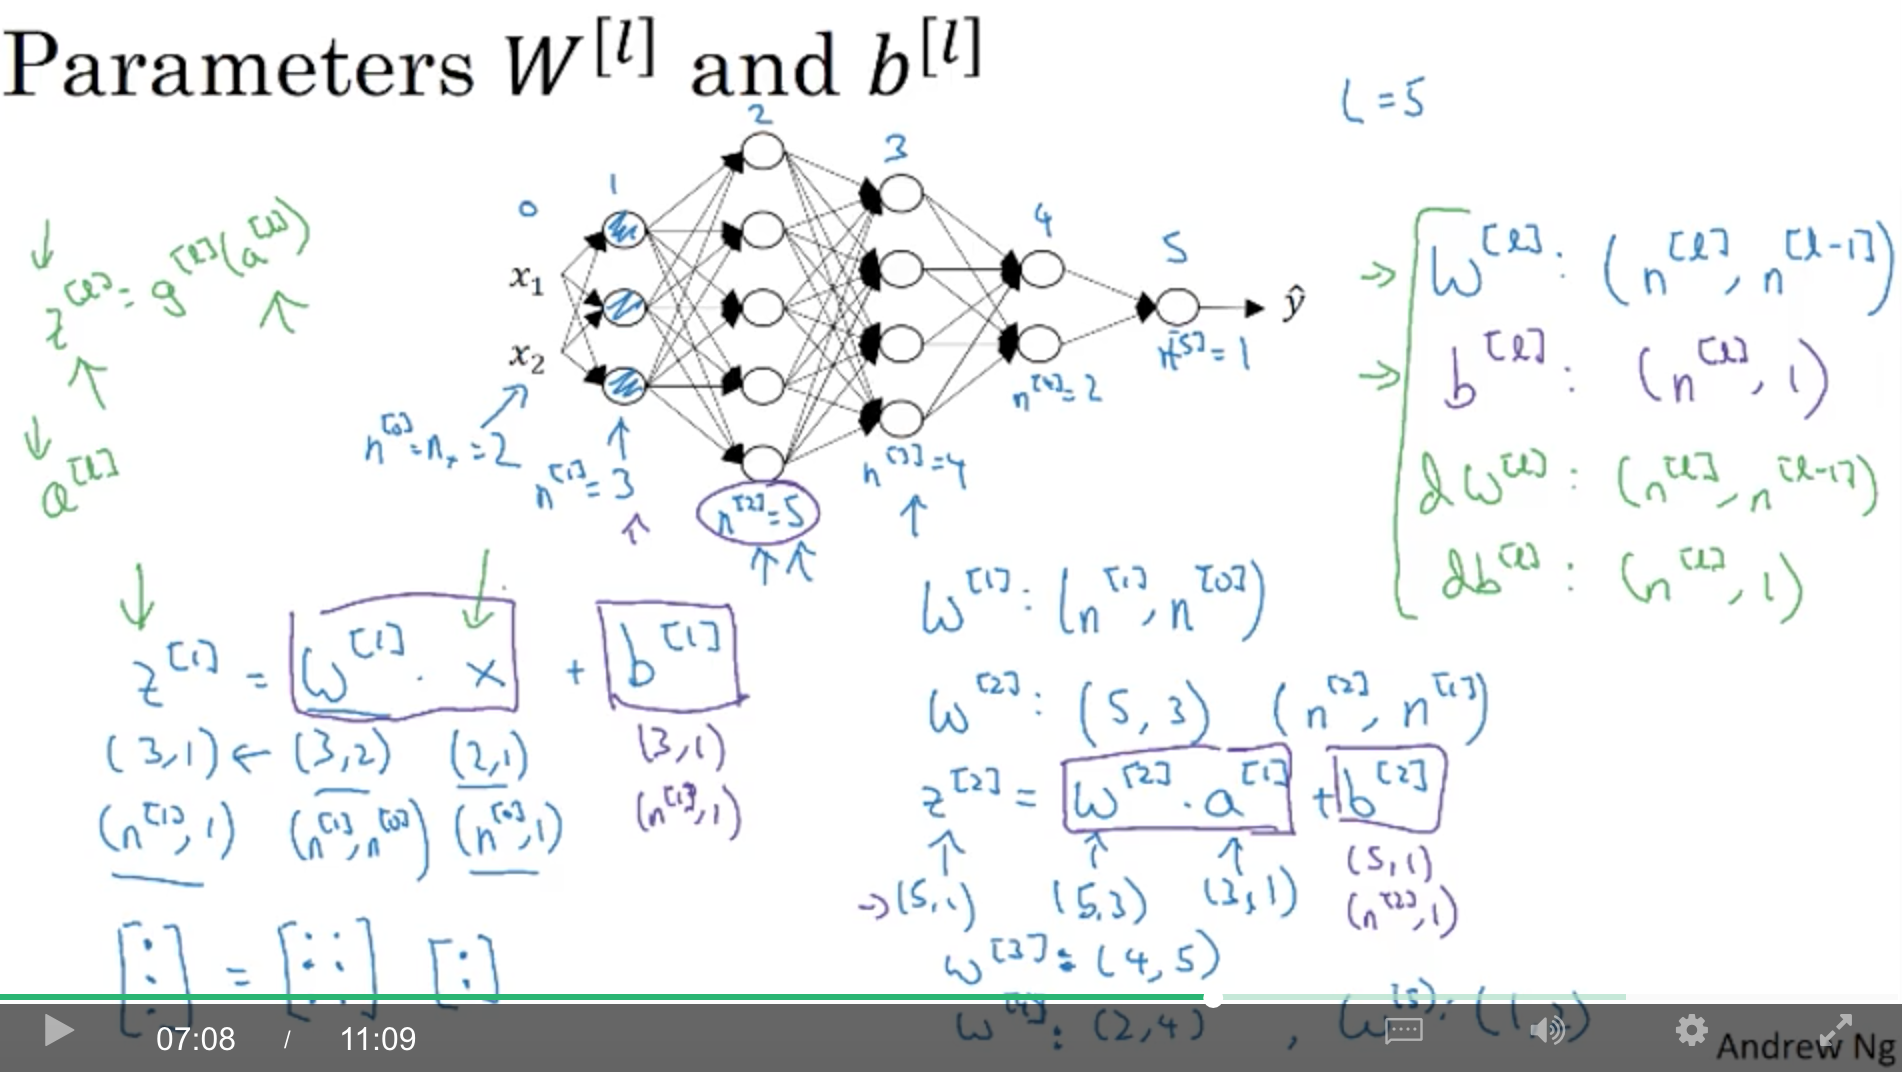 Parameters W^[l] and b^[l]
L = 5
0 1 2 3 4 5
x₁
x₂
ŷ
z^[l] = g^[l](a^[l])
a^[l]
n^[0] = n_x = 2
n^[1] = 3
n^[2] = 5
n^[3] = 4
n^[4] = 2
n^[5] = 1
W^[l] : (n^[l], n^[l-1])
b^[l] : (n^[l], 1)
dW^[l] : (n^[l], n^[l-1])
db^[l] : (n^[l], 1)
z^[1] = W^[1] · x + b^[1]
(3,1) ← (3,2) (2,1) (3,1)
(n^[1], 1) (n^[1], n^[0]) (n^[0], 1) (n^[1], 1)
W^[1] : (n^[1], n^[0])
W^[2] : (5, 3) (n^[2], n^[1])
z^[2] = W^[2] · a^[1] + b^[2]
→ (5,1) (5,3) (3,1) (5,1)
(n^[2], 1)
W^[3] : (4, 5)
W^[4] : (2,4) , W^[5] : (1,
07:08 / 11:09
Andrew Ng